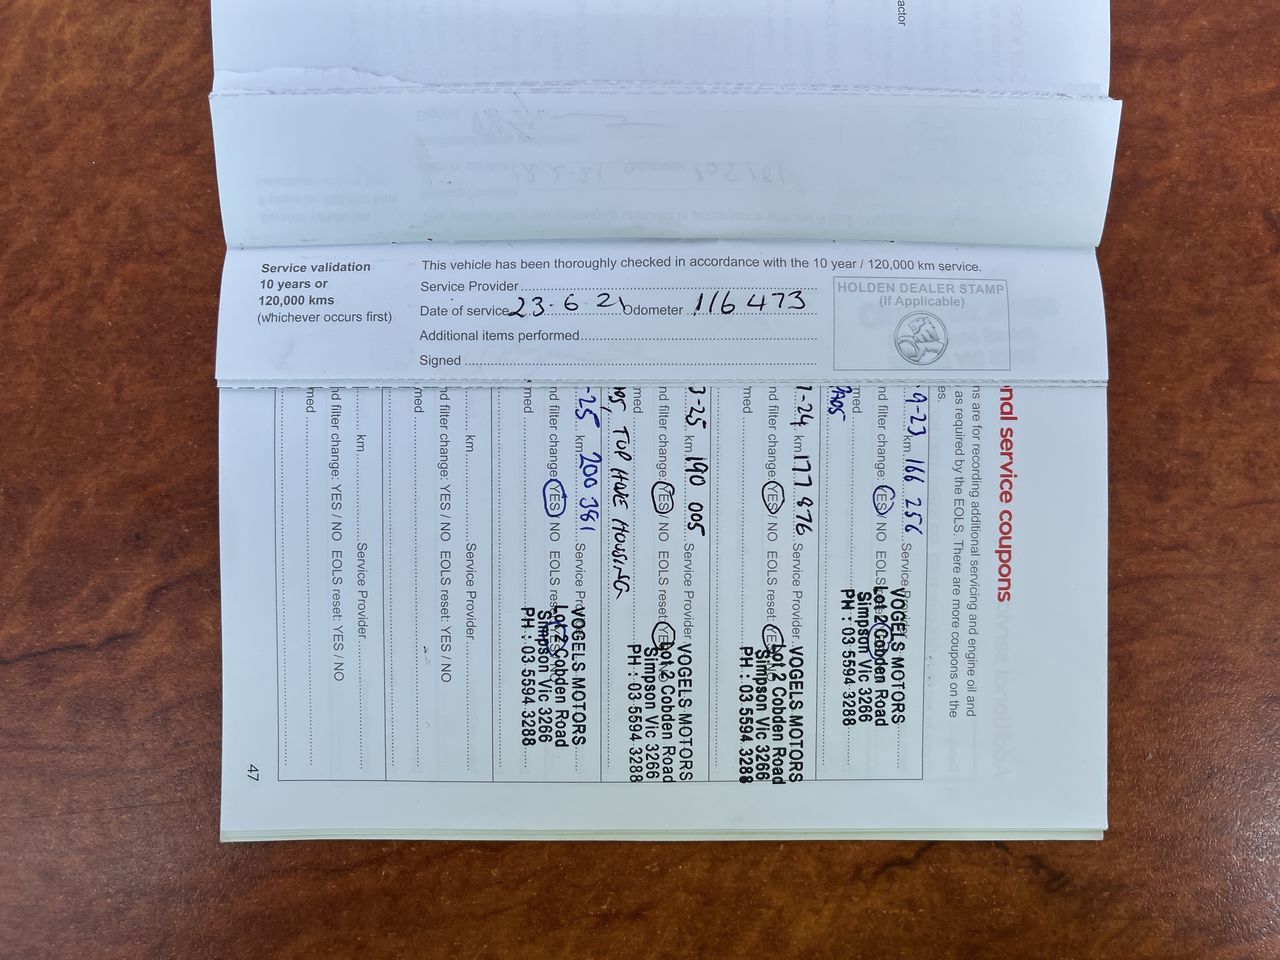 actor
Service validation
10 years or
120,000 kms
(whichever occurs first)
This vehicle has been thoroughly checked in accordance with the 10 year / 120,000 km service.
Service Provider
Date of service 23-6 21 Odometer 116 473
Additional items performed
Signed
HOLDEN DEALER STAMP
(If Applicable)
nal service coupons
ns are for recording additional servicing and engine oil and
as required by the EOLS. There are more coupons on the
es.
9-23 km 166 256 Service Provider
nd filter change: YES / NO EOLS
med
VOGELS MOTORS
Lot 2 Cobden Road
Simpson Vic 3266
PH : 03 5594 3288
1-24 km 177 876 Service Provider
nd filter change: YES / NO EOLS reset: YES
med
VOGELS MOTORS
Lot 2 Cobden Road
Simpson Vic 3266
PH : 03 5594 3288
3-25 km 190 005 Service Provider
nd filter change: YES / NO EOLS reset: YE
med
HOUSING
VOGELS MOTORS
Lot 2 Cobden Road
Simpson Vic 3266
PH : 03 5594 3288
-25 km 200 381 Service Pro
nd filter change: YES / NO EOLS res
med
VOGELS MOTORS
Lot 2 Cobden Road
Simpson Vic 3266
PH : 03 5594 3288
km Service Provider
nd filter change: YES / NO EOLS reset: YES / NO
med
km Service Provider
nd filter change: YES / NO EOLS reset: YES / NO
med
47